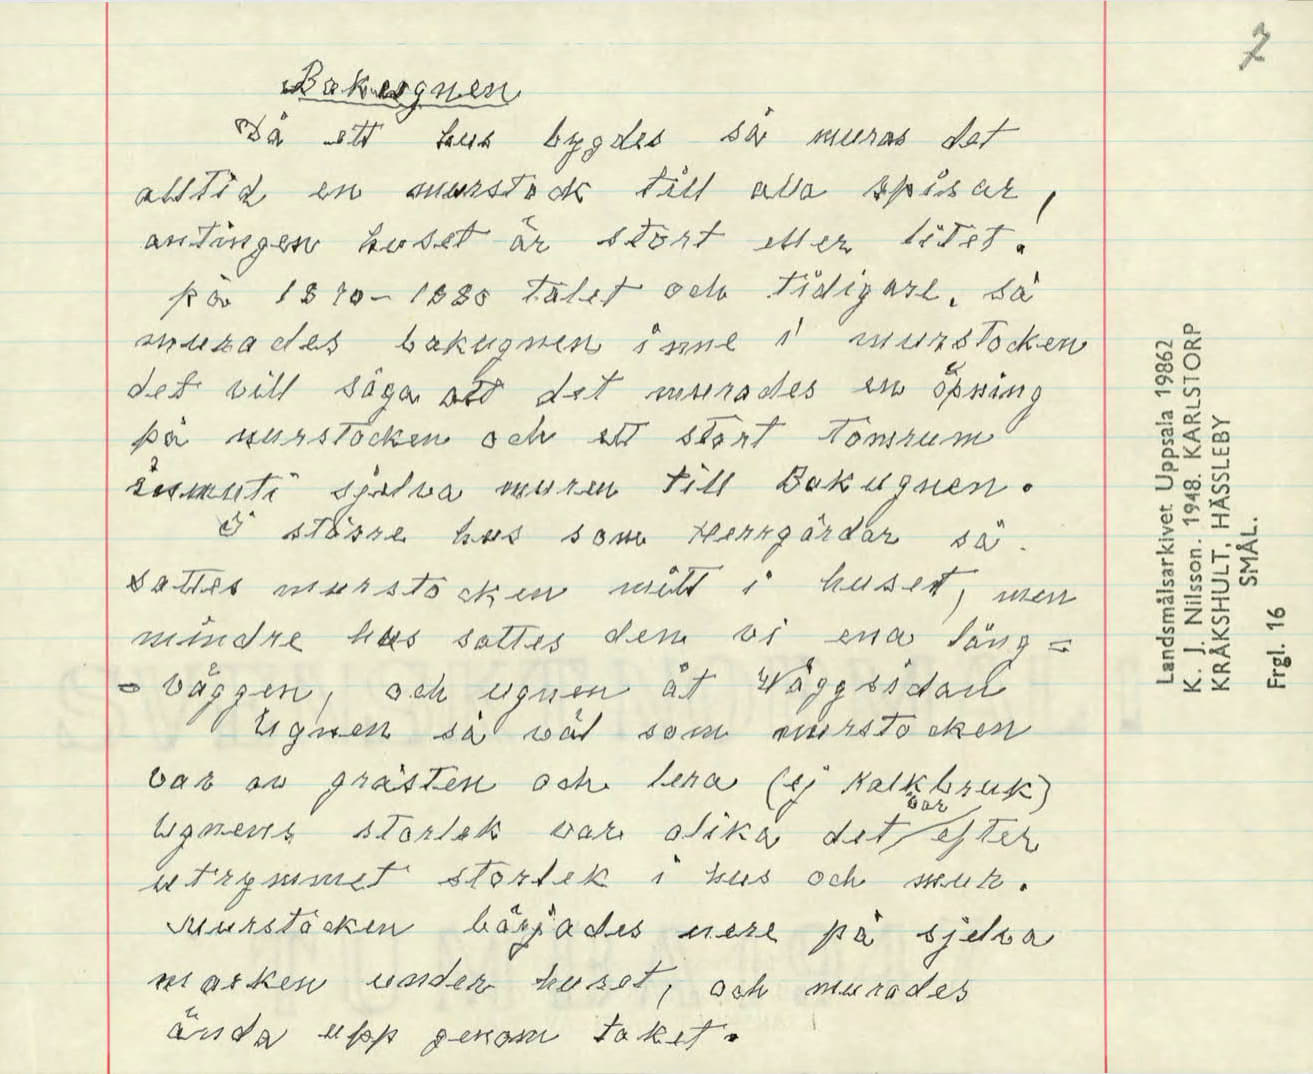 7
Bakugnen
Då ett hus bygdes så muras det
alltid en murstock till alla spisar,
antingen huset är stort eller litet.
på 1870-1880 talet och tidigare, så
murades bakugnen inne i murstocken
det vill säga att det murades en öpning
på murstocken och ett stort tomrum
inmuti sjelva muren till Bakugnen.
I större hus som Herrgårdar så
sattes murstocken mitt i huset, men
mindre hus sattes den vi ena lång=
=väggen, och ugnen åt Väggsidan
Ugnen så väl som murstocken
var av gråsten och lera (ej Kalkbruk)
Ugnens storlek var olika det var efter
utrymmet storlek i hus och mur.
Murstocken börjades nere på sjelva
marken under huset, och murades
ända upp genom taket.
Landsmålsarkivet Uppsala 19862
K. J. Nilsson. 1948. KARLSTORP
KRÅKSHULT, HÄSSLEBY
SMÅL.
Frgl. 16